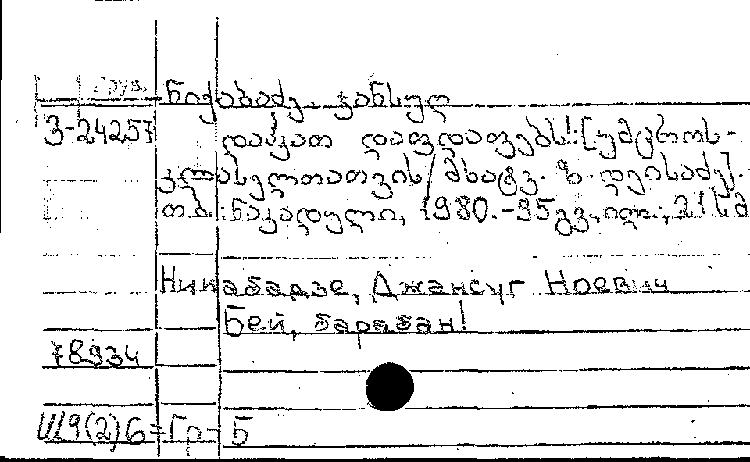 Груз.
ნიჟაბაძე, ჯანსუღ
3-24257 დაჰკათ დაფდაფებს!: [უმცროს-
კლასელთათვის/მხატვ. ზ. დეისაძე].
თბ.: ნაკადული, 1980.-95გვ., ილ.; 21 სმ
Нижабадзе, Джансуг Ноевич
Бей, барабан!
78934
Ш9(2)6=Гр- Б